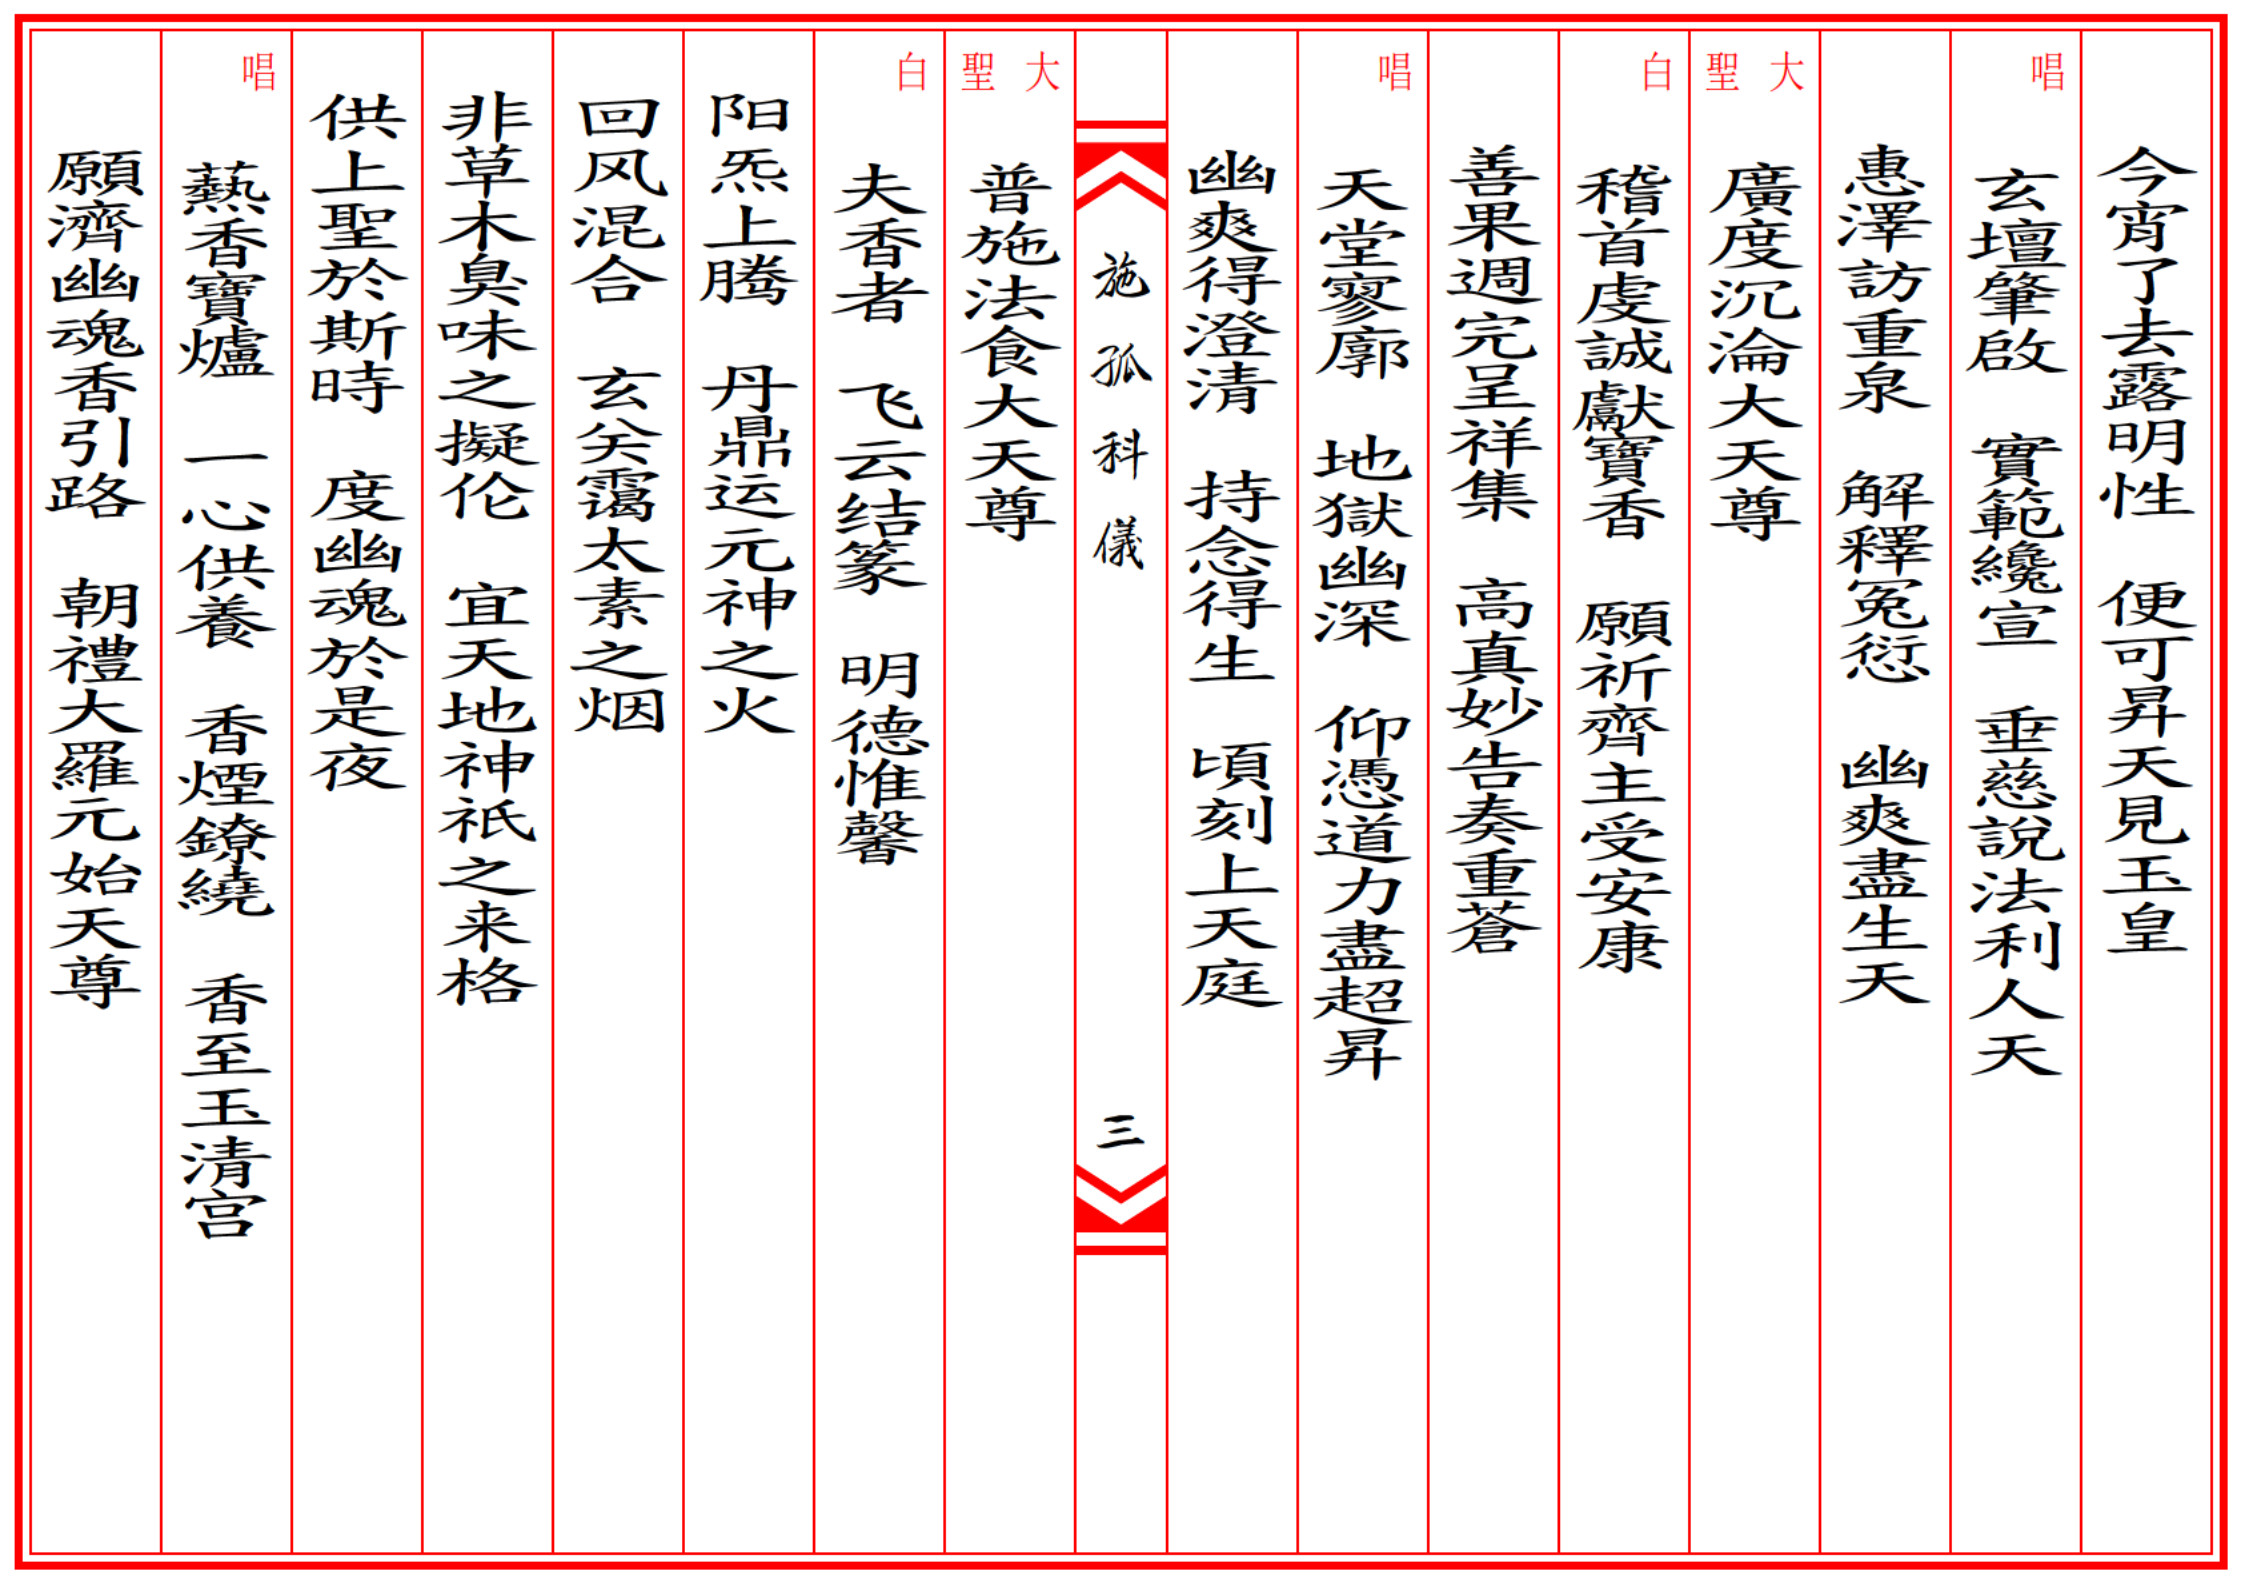 今宵了去露明性　便可昇天見玉皇
唱　玄壇肇啟　寶範纔宣　垂慈說法利人天
惠澤訪重泉　解釋冤愆　幽爽盡生天
大聖　廣度沉淪大天尊
白　稽首虔誠獻寶香　願祈齊主受安康
善果週完呈祥集　高真妙告奏重蒼
唱　天堂寥廓　地獄幽深　仰憑道力盡超昇
幽爽得澄清　持念得生　頃刻上天庭
施孤科儀　三
大聖　普施法食大天尊
白　夫香者　飞云结篆　明德惟馨
阳炁上腾　丹鼎运元神之火
回风混合　玄关霭太素之烟
非草木臭味之擬伦　宜天地神祇之来格
供上聖於斯時　度幽魂於是夜
唱　爇香寶爐　一心供養　香煙鐐繞　香至玉清宫
願濟幽魂香引路　朝禮大羅元始天尊